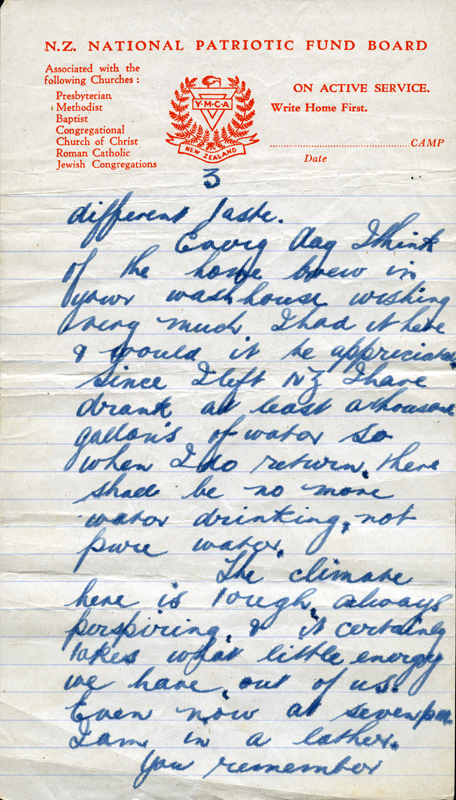 N.Z. NATIONAL PATRIOTIC FUND BOARD
Associated with the
following Churches :
Presbyterian
Methodist
Baptist
Congregational
Church of Christ
Roman Catholic
Jewish Congregations
Y·M·C·A
NEW ZEALAND
ON ACTIVE SERVICE.
Write Home First.
CAMP
Date
3
different taste.
Every day I think
of the home brew in
your washhouse wishing
very much I had it here
& would it be appreciated.
Since I left NZ I have
drank at least a thousand
gallons of water so
when I do return, there
shall be no more
water drinking, not
pure water.
The climate
here is tough, always
perspiring, & it certainly
takes what little energy
we have, out of us.
Even now at seven pm
I am in a lather.
You remember